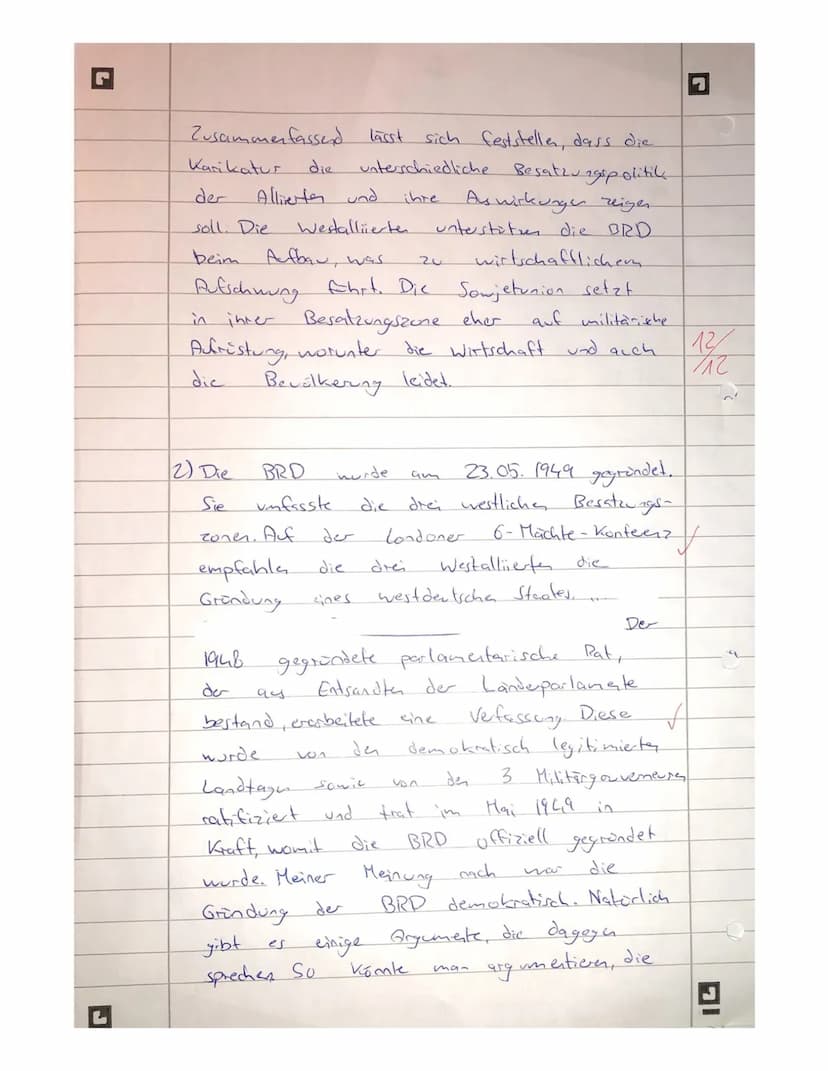 Zusammenfassend lässt sich feststellen, dass die
Karikatur die unterschiedliche Besatzungspolitik
der Allierten und ihre Auswirkungen zeigen
soll. Die Westalliierten unterstützen die BRD
beim Aufbau, was zu wirtschaftlichem
Aufschwung führt. Die Sowjetunion setzt
in ihrer Besatzungszone eher auf militärische
Aufrüstung, worunter die Wirtschaft und auch
die Bevölkerung leidet.
12/12
2) Die BRD wurde am 23.05.1949 gegründet.
Sie umfasste die drei westlichen Besatzungs-
zonen. Auf der Londoner 6-Mächte-Konferenz
empfahlen die drei Westalliierten die
Gründung eines westdeutschen Staates. ...
Der
1948 gegründete parlamentarische Rat,
der aus Entsandten der Länderparlamente
bestand, erarbeitete eine Verfassung. Diese
wurde von den demokratisch legitimierten
Landtagen sowie von den 3 Militärgouverneuren
ratifiziert und trat im Mai 1949 in
Kraft, womit die BRD offiziell gegründet
wurde. Meiner Meinung nach war die
Gründung der BRD demokratisch. Natürlich
gibt es einige Argumente, die dagegen
sprechen. So könnte man argumentieren, die